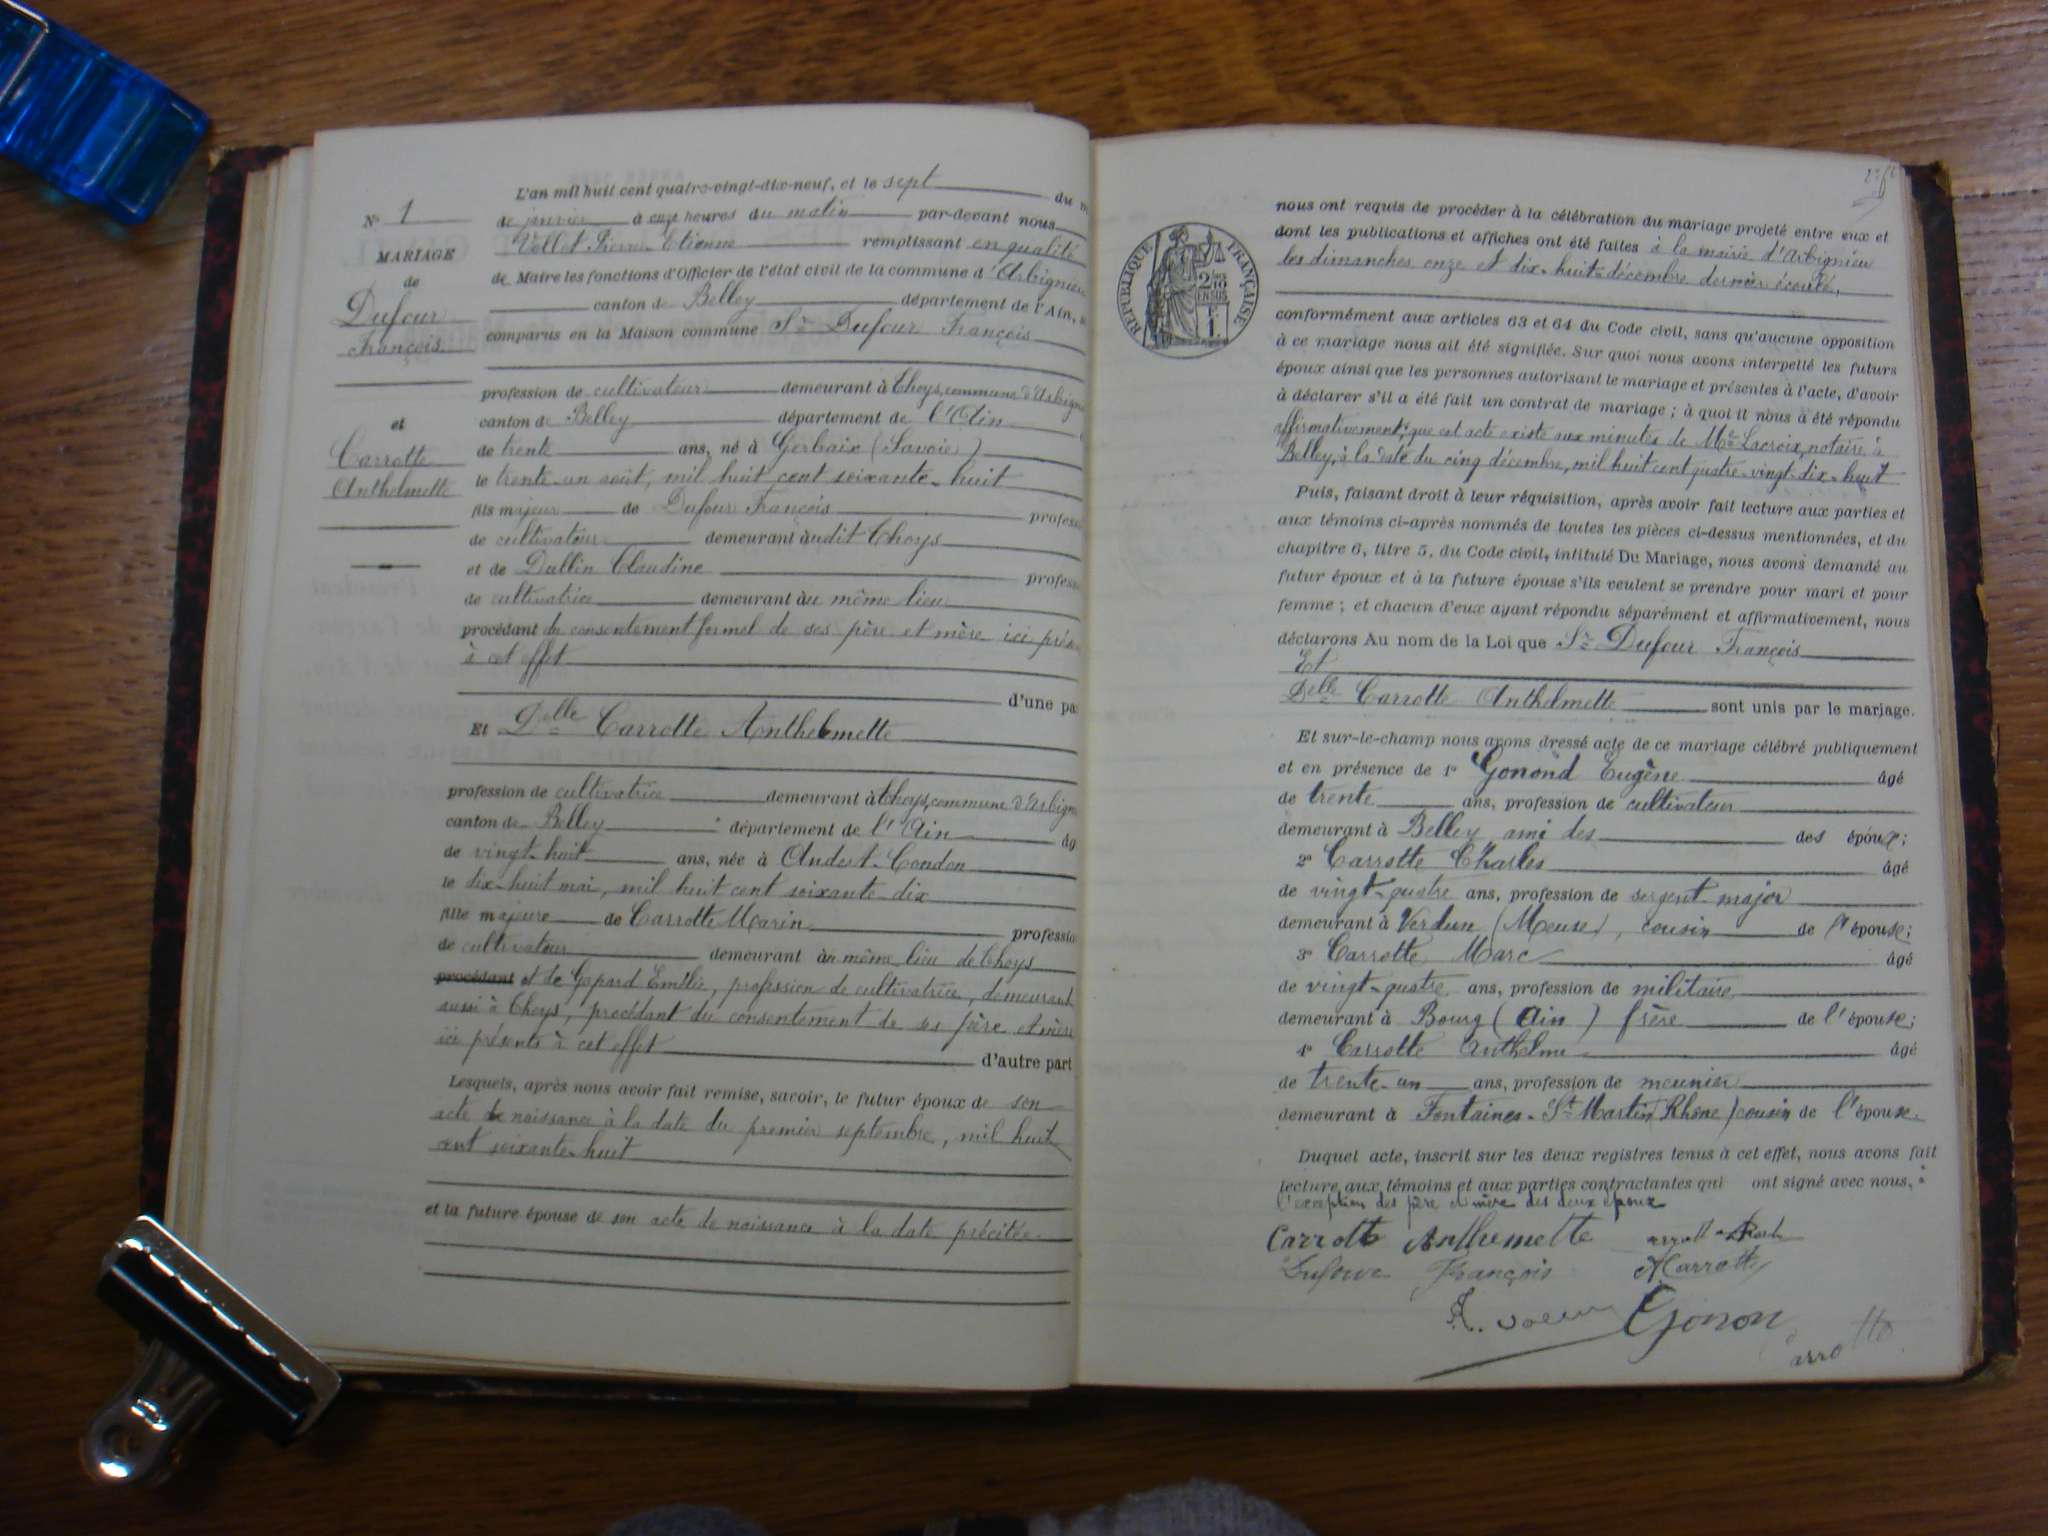 L'an mil huit cent quatre-vingt-dix-neuf, et le sept du m
N° 1
de janvier à onze heures du matin par-devant nous
Vollet Pierre-Etienne remplissant en qualité
MARIAGE
de
Dufour
François
et
Carrotte
Anthelmette
de Maire les fonctions d'Officier de l'état civil de la commune d'Arbignieu
canton de Belley département de l'Ain, s
comparus en la Maison commune Sr Dufour François
profession de cultivateur demeurant à Thoys, commune d'Arbign
canton de Belley département de l'Ain
de trente ans, né à Gerbaix (Savoie)
le trente-un août, mil huit cent soixante-huit
fils majeur de Dufour François profess
de cultivateur demeurant audit Thoys
et de Dullin Claudine profess
de cultivatrice demeurant au même lieu
procédant du consentement formel de ses père et mère ici prés
à cet effet
d'une pa
Et Delle Carrotte Anthelmette
profession de cultivatrice demeurant à Thoys, commune d'Arbign
canton de Belley département de l'Ain âg
de vingt-huit ans, née à Andert-Condon
le dix-huit mai, mil huit cent soixante-dix
fille majeure de Carrotte Marin professio
de cultivateur demeurant au même lieu de Thoys
procédant et de Gopard Emélie, profession de cultivatrice, demeurant
aussi à Thoys, procédant du consentement de ses père et mère
ici présents à cet effet d'autre part
Lesquels, après nous avoir fait remise, savoir, le futur époux de son
acte de naissance à la date du premier septembre, mil huit
cent soixante-huit
et la future épouse de son acte de naissance à la date précitée
RÉPUBLIQUE FRANÇAISE
2/10
EN SUS
1F
nous ont requis de procéder à la célébration du mariage projeté entre eux et
dont les publications et affiches ont été faites à la mairie d'Arbignieu
les dimanches onze et dix-huit décembre dernier écoulé,
conformément aux articles 63 et 64 du Code civil, sans qu'aucune opposition
à ce mariage nous ait été signifiée. Sur quoi nous avons interpellé les futurs
époux ainsi que les personnes autorisant le mariage et présentes à l'acte, d'avoir
à déclarer s'il a été fait un contrat de mariage ; à quoi il nous a été répondu
affirmativement, que cet acte existe aux minutes de Me Lacroix, notaire à
Belley, à la date du cinq décembre, mil huit cent quatre-vingt-dix-huit
Puis, faisant droit à leur réquisition, après avoir fait lecture aux parties et
aux témoins ci-après nommés de toutes les pièces ci-dessus mentionnées, et du
chapitre 6, titre 5, du Code civil, intitulé Du Mariage, nous avons demandé au
futur époux et à la future épouse s'ils veulent se prendre pour mari et pour
femme ; et chacun d'eux ayant répondu séparément et affirmativement, nous
déclarons Au nom de la Loi que Sr Dufour François
Et
Delle Carrotte Anthelmette sont unis par le mariage.
Et sur-le-champ nous avons dressé acte de ce mariage célébré publiquement
et en présence de 1° Gonond Eugène âgé
de trente ans, profession de cultivateur
demeurant à Belley ami des des époux;
2° Carrotte Charles âgé
de vingt-quatre ans, profession de sergent-major
demeurant à Verdun (Meuse), cousin de l'épouse;
3° Carrotte Marc âgé
de vingt-quatre ans, profession de militaire
demeurant à Bourg (Ain) frère de l'épouse;
4° Carrotte Anthelme âgé
de trente-un ans, profession de meunier
demeurant à Fontaines-St Martin (Rhône) cousin de l'épouse.
Duquel acte, inscrit sur les deux registres tenus à cet effet, nous avons fait
lecture aux témoins et aux parties contractantes qui ont signé avec nous, à
l'exception des père et mère des deux époux
Carrotte Anthemette
Dufour François
A Carrotte
Gonon